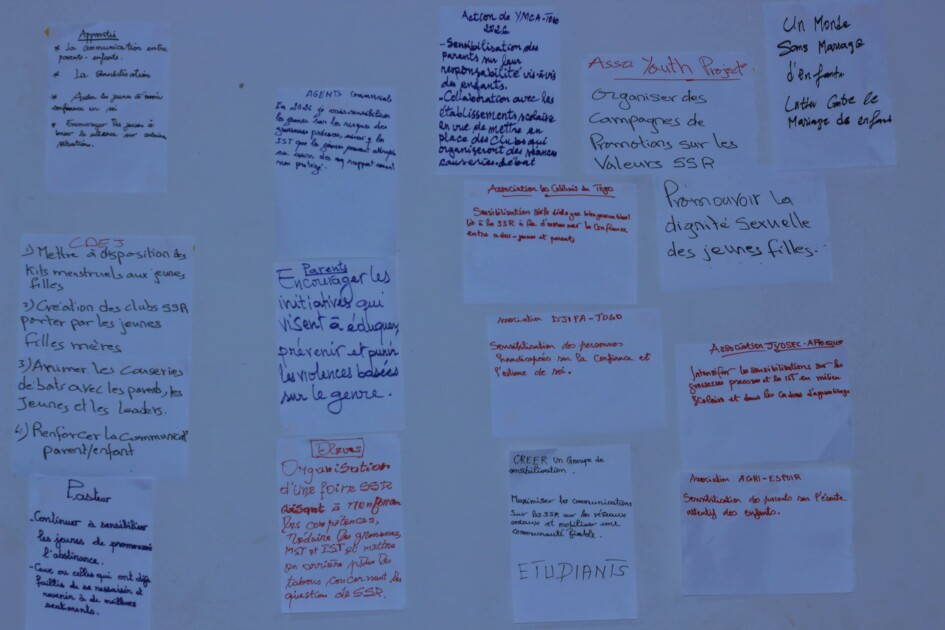 Apprentis
* La communication entre
parents-enfants.
* La sensibilisation
* Aider les jeunes à avoir
confiance en soi
* Encourager les jeunes à
CDEJ
1) Mettre à disposition des
Kits menstruels aux jeunes
filles
2) Création des clubs SSR
porter par les jeunes
filles mères
3) Animer les causeries
debats avec les parents, les
Jeunes et les Leaders.
4) Renforcer la communicat
parent/enfant
Pasteur
- Continuer à sensibiliser
les jeunes de
l'abstinence.
- Ceux ou celles qui ont déjà
faillis de se ressaisir et
revenir à de meilleurs
sentiments.
AGENTS commerciaux
En 2026 je vais sensibiliser
les jeunes sur les risques des
grossesses précoces, ainsi q les
IST que les jeunes peuvent
non protégé.
Parents
Encourager les
initiatives qui
visent à éduquer,
prévenir et punir
les violences basées
sur le genre.
Eleves
Organisation
d'une foire SSR
visant à renforcer
les compétences,
réduire les grossesses,
MST et IST et mettre
en arrière plan les
tabous concernant les
question de SSR.
Action de YMCA-TOGO
2026
- Sensibilisation des
parents sur leur
responsabilité vis-à-vis
des enfants.
- Collaboration avec les
établissements scolaire
en vue de mettre en
place des clubs qui
organiseront des séances
causeries-débat
Association les Colibris du Togo
Sensibilisation sur le dialogue intergénérationnel
lié à la SSR à fin d'instaurer la confiance
entre ados-jeunes et parents
Association DJIFA-TOGO
Sensibilisation des personnes
handicapées sur la confiance et
l'estime de soi.
CREER un Groupe de
sensibilisation.
Maximiser les communications
sur les SSR sur les réseaux
sociaux et mobiliser une
communauté fiable.
ETUDIANTS
Asso Youth Project
Organiser des
Campagnes de
Promotions sur les
Valeurs SSR
Promouvoir la
dignité sexuelle
des jeunes filles.
Un Monde
Sans Mariage
d'enfants
Lutter Contre le
Mariage de enfant
Association JVDSEC-AFRIQUE
Intensifier les sensibilisations sur les
grossesses précoces et les IST en milieu
scolaire et dans les centres d'apprentissage
Association AGRI-ESPOIR
Sensibilisation des parents sur l'écoute
attentif des enfants.